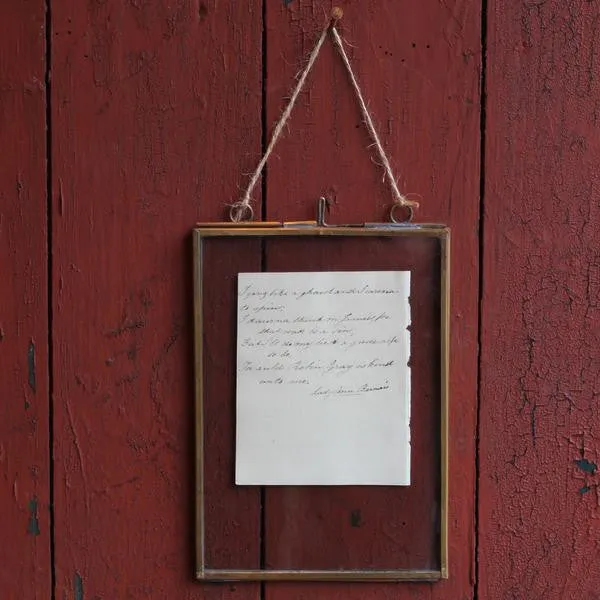 I gang like a ghaist and I carena
to spin,
I daurna think on Jamie for
that wad be a sin,
But I'll do my best a gude wife
to be,
For auld Robin Gray is kind
unto me.
Lady Anne